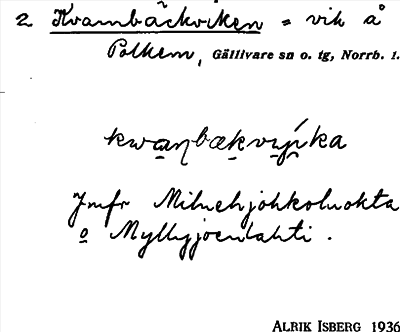 2 Kvarnbäckviken = vik å
Polkem, Gällivare sn o. tg, Norrb. l.
Jmfr Milnehjohkoluokta
o Myllyjoenlahti.
ALRIK ISBERG 1936